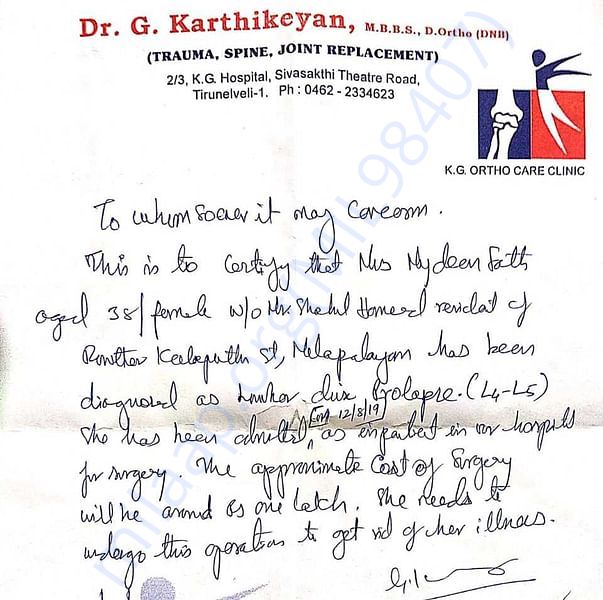 Dr. G. Karthikeyan, M.B.B.S., D.Ortho (DNB)
(TRAUMA, SPINE, JOINT REPLACEMENT)
2/3, K.G. Hospital, Sivasakthi Theatre Road,
Tirunelveli-1. Ph : 0462 - 2334623
K.G. ORTHO CARE CLINIC
To whom soever it may concern.
This is to certify that Mrs Mydeen Fath
aged 38/female w/o Mr. Shahul Hameed resident of
Rowther Keelaputhu St, Melapalayam has been
diagnosed as lumbar disc Prolapse. (L4-L5)
on 12/8/19
She has been admitted, as inpatient in our hospital
for surgery. The approximate cost of Surgery
will be around Rs one lakh. She needs to
undergo this operation to get rid of her illness.
milaap.org(MIL98407)